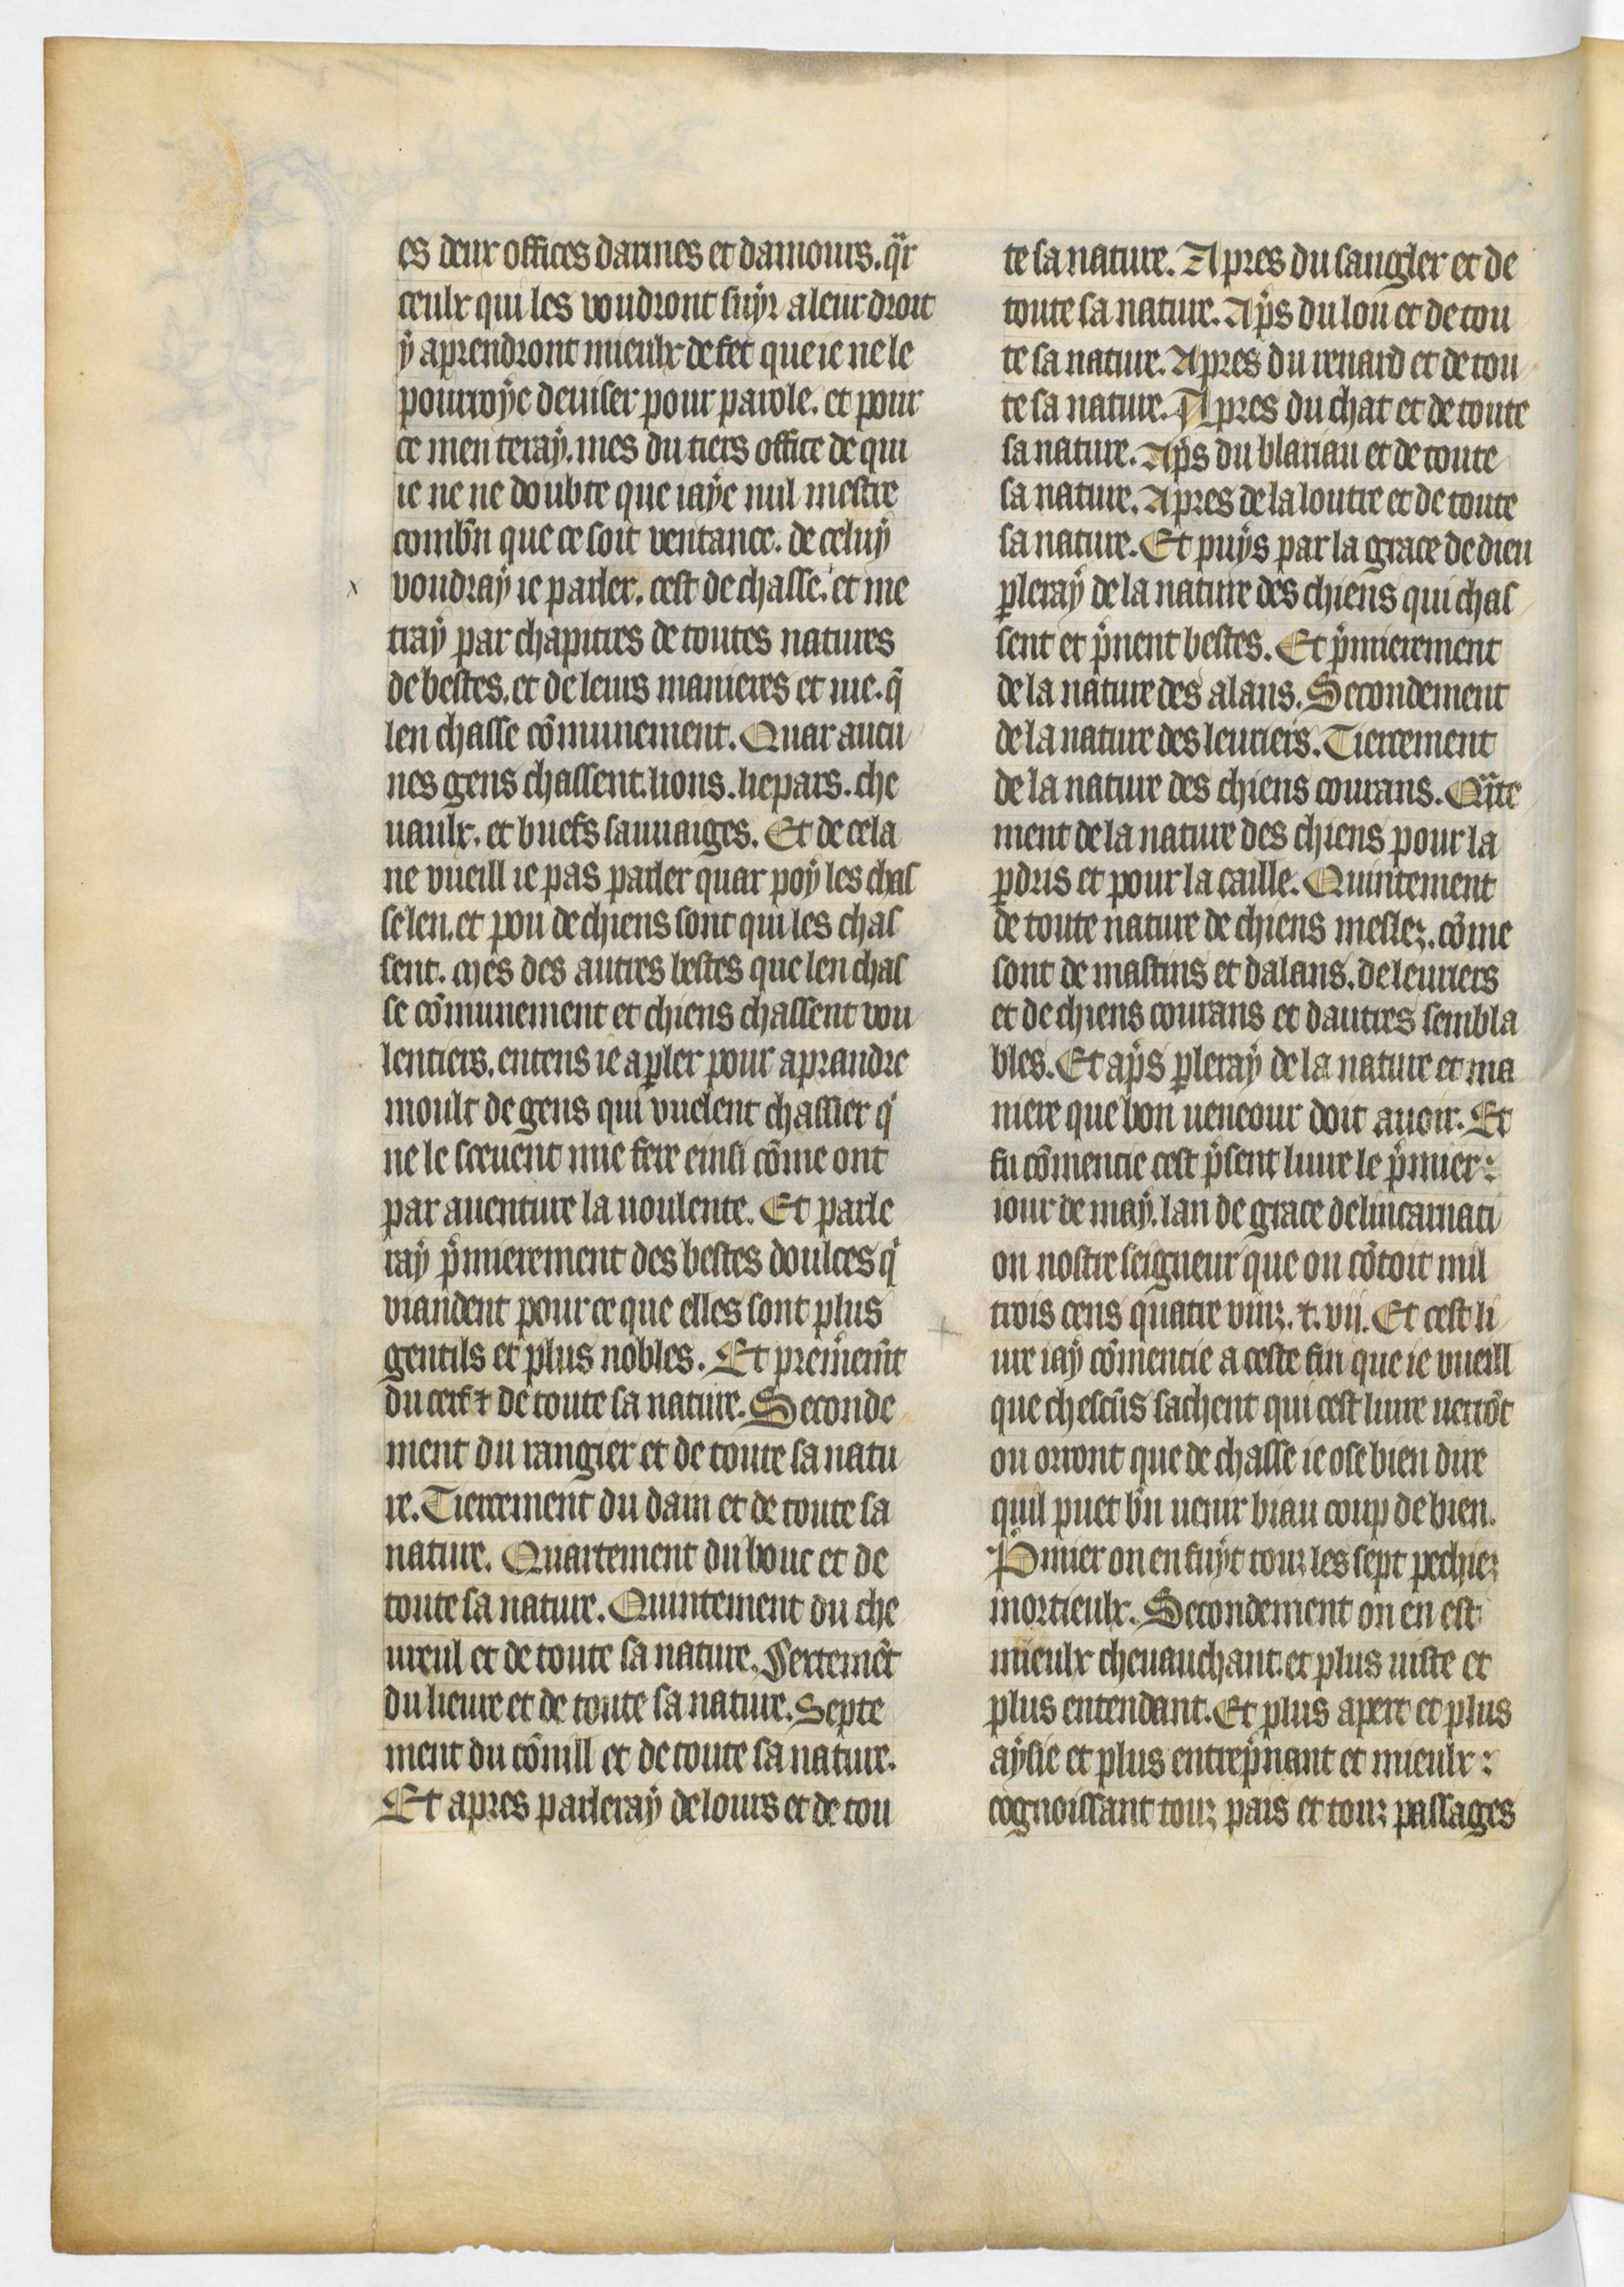 es deux offices darmes et damours. qr̃
ceulx qui les voudront suÿr a leur droit
ÿ aprendront mieulx de fet que ie ne le
pourroÿe deuiser pour parole. et pour
ce men teraÿ. mes du tiers office de qui
ie ne ne doubte que iaÿe nul mestre
combn̄ que ce soit ventance. de celuÿ
x voudraÿ ie parler. cest de chasse. et me
traÿ par chapitres de toutes natures
de bestes. et de leurs manieres et uie. q̃
len chasse cõmunement. Quar aucu
nes gens chassent. lions. liepars. che
uaulx. et buefs sauuaiges. Et de cela
ne vueill ie pas parler quar poÿ les chas
se len. et pou de chiens sont qui les chas
sent. Mes des autres bestes que len chas
se cõmunement et chiens chassent vou
lentiers. entens ie a ꝑler pour aprandre
moult de gens qui vuelent chassier qͥ
ne le sceuent mie fere einsi cõme ont
par auenture la uoulente. Et parle
raÿ pͥmierement des bestes doulces qͥ
viandent pour ce que elles sont plus
gentils et plus nobles. Et premierem̃t
du cerf ⁊ de toute sa nature. Seconde
ment du rangier et de toute sa natu
re. Tiercement du dam et de toute sa
nature. Quartement du bouc et de
toute sa nature. Quintement du che
ureul et de toute sa nature. Sextemẽt
du lieure et de toute sa nature. Septe
ment du cõnill et de toute sa nature.
Et apres parleraÿ de lours et de tou
te sa nature. Apres du sangler et de
toute sa nature. Ap̃s du lou et de tou
te sa nature. Apres du renard et de tou
te sa nature. Apres du chat et de toute
sa nature. Ap̃s du blariau et de toute
sa nature. Apres de la loutre et de toute
sa nature. Et puÿs par la grace de dieu
ꝑleraÿ de la nature des chiens qui chas
sent et p̃nent bestes. Et pͥmierement
de la nature des alans. Secondement
de la nature des leuriers. Tiercement
de la nature des chiens courans. Qᷓrte
ment de la nature des chiens pour la
ꝑdris et pour la caille. Quintement
de toute nature de chiens meslez. cõme
sont de mastins et dalans. de leuriers
et de chiens courans et dautres sembla
bles. Et ap̃s ꝑleraÿ de la nature et ma
niere que bon ueneour doit auoir. Et
fu cõmencie cest p̃sent liure le pͥmier:
iour de maÿ. lan de grace delincarnati
on nostre seigneur que on cõtoit mil
trois cens quatre vinz. ⁊. vij. Et cest li
ure iaÿ cõmencie a ceste fin que ie vueill
que chescũs sachent qui cest liure uerrõt
ou orront que de chasse ie ose bien dire
quil puet bn̄ uenir biau coup de bien.
Pͥmier on en fuÿt touz les sept pechiez
mortieulx. Secondement on en est
mieulx cheuauchant. et plus uiste et
plus entendant. Et plus apert et plus
aÿsie et plus entrep̃nant et mieulx:
cognoissant touz pais et touz passages